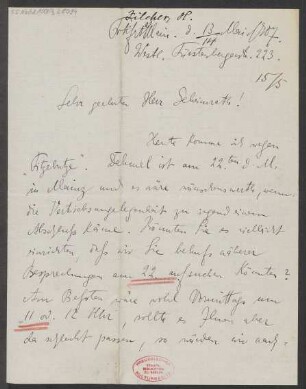 Zilcher H.
Frkft a/Main. d. 13/14 Mai 1907.
Westl. Fürstenbergerstr. 223.
15/5
Sehr geehrter Herr Geheimrath!
Heute komme ich wegen
"Fitzebutze". Dehmel ist am 22ten d. M.
in Mainz und es wäre wünschenswerth, wenn
die Verlagsangelegenheit zu irgend einem
Abschluss käme. Könnten Sie es vielleicht
einrichten, dass wir Sie behufs näherer
Besprechungen am 22. aufsuchen könnten?
Am Besten wäre wohl Vormittags um
11 od. 12 Uhr, sollte es Ihnen aber
da schlecht passen, so würden wir auch